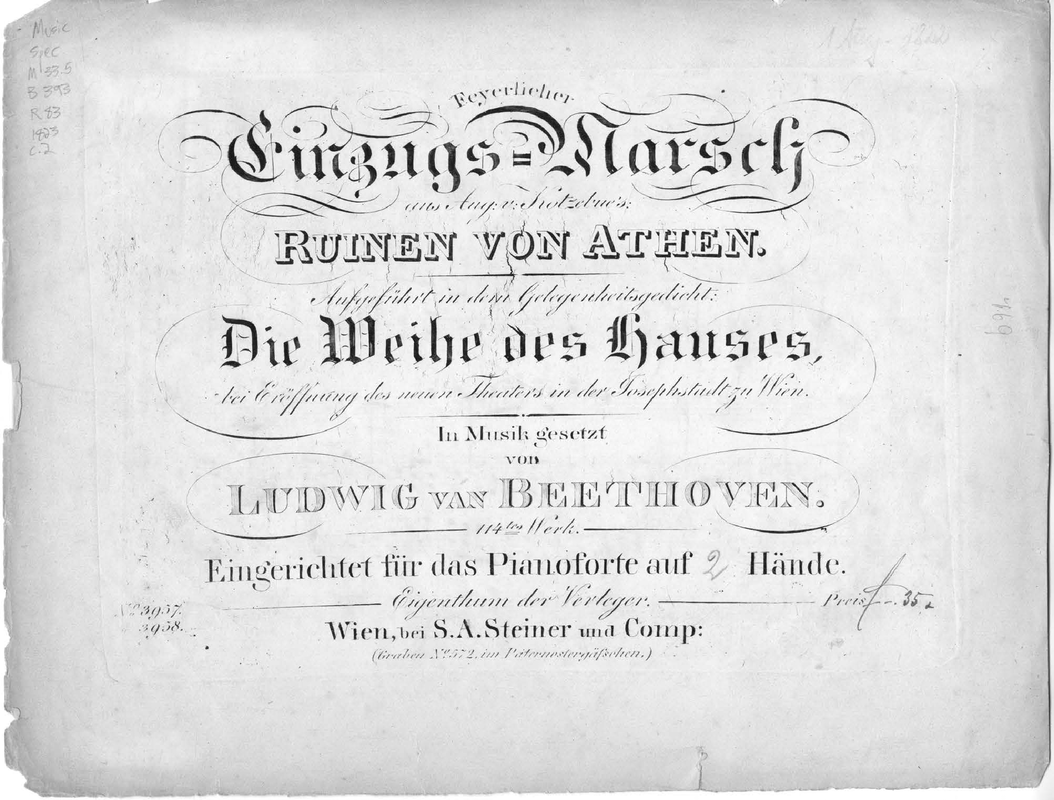 Music
Spec
M 33.5
B 393
R 83
1823
c.2
Feyerlicher
Einzugs=Marsch
aus Aug: v: Kotzebue's:
RUINEN VON ATHEN.
Aufgeführt in dem Gelegenheitsgedicht:
Die Weihe des Hauses,
bei Eröffnung des neuen Theaters in der Josephstadt zu Wien.
In Musik gesetzt
von
LUDWIG VAN BEETHOVEN.
114tes Werk.
Eingerichtet für das Pianoforte auf 2 Hände.
Eigenthum der Verleger.
Preis f-.35.
No 3957.
3958.
Wien, bei S.A. Steiner und Comp:
(Graben No 572. im Paternostergäfschen.)